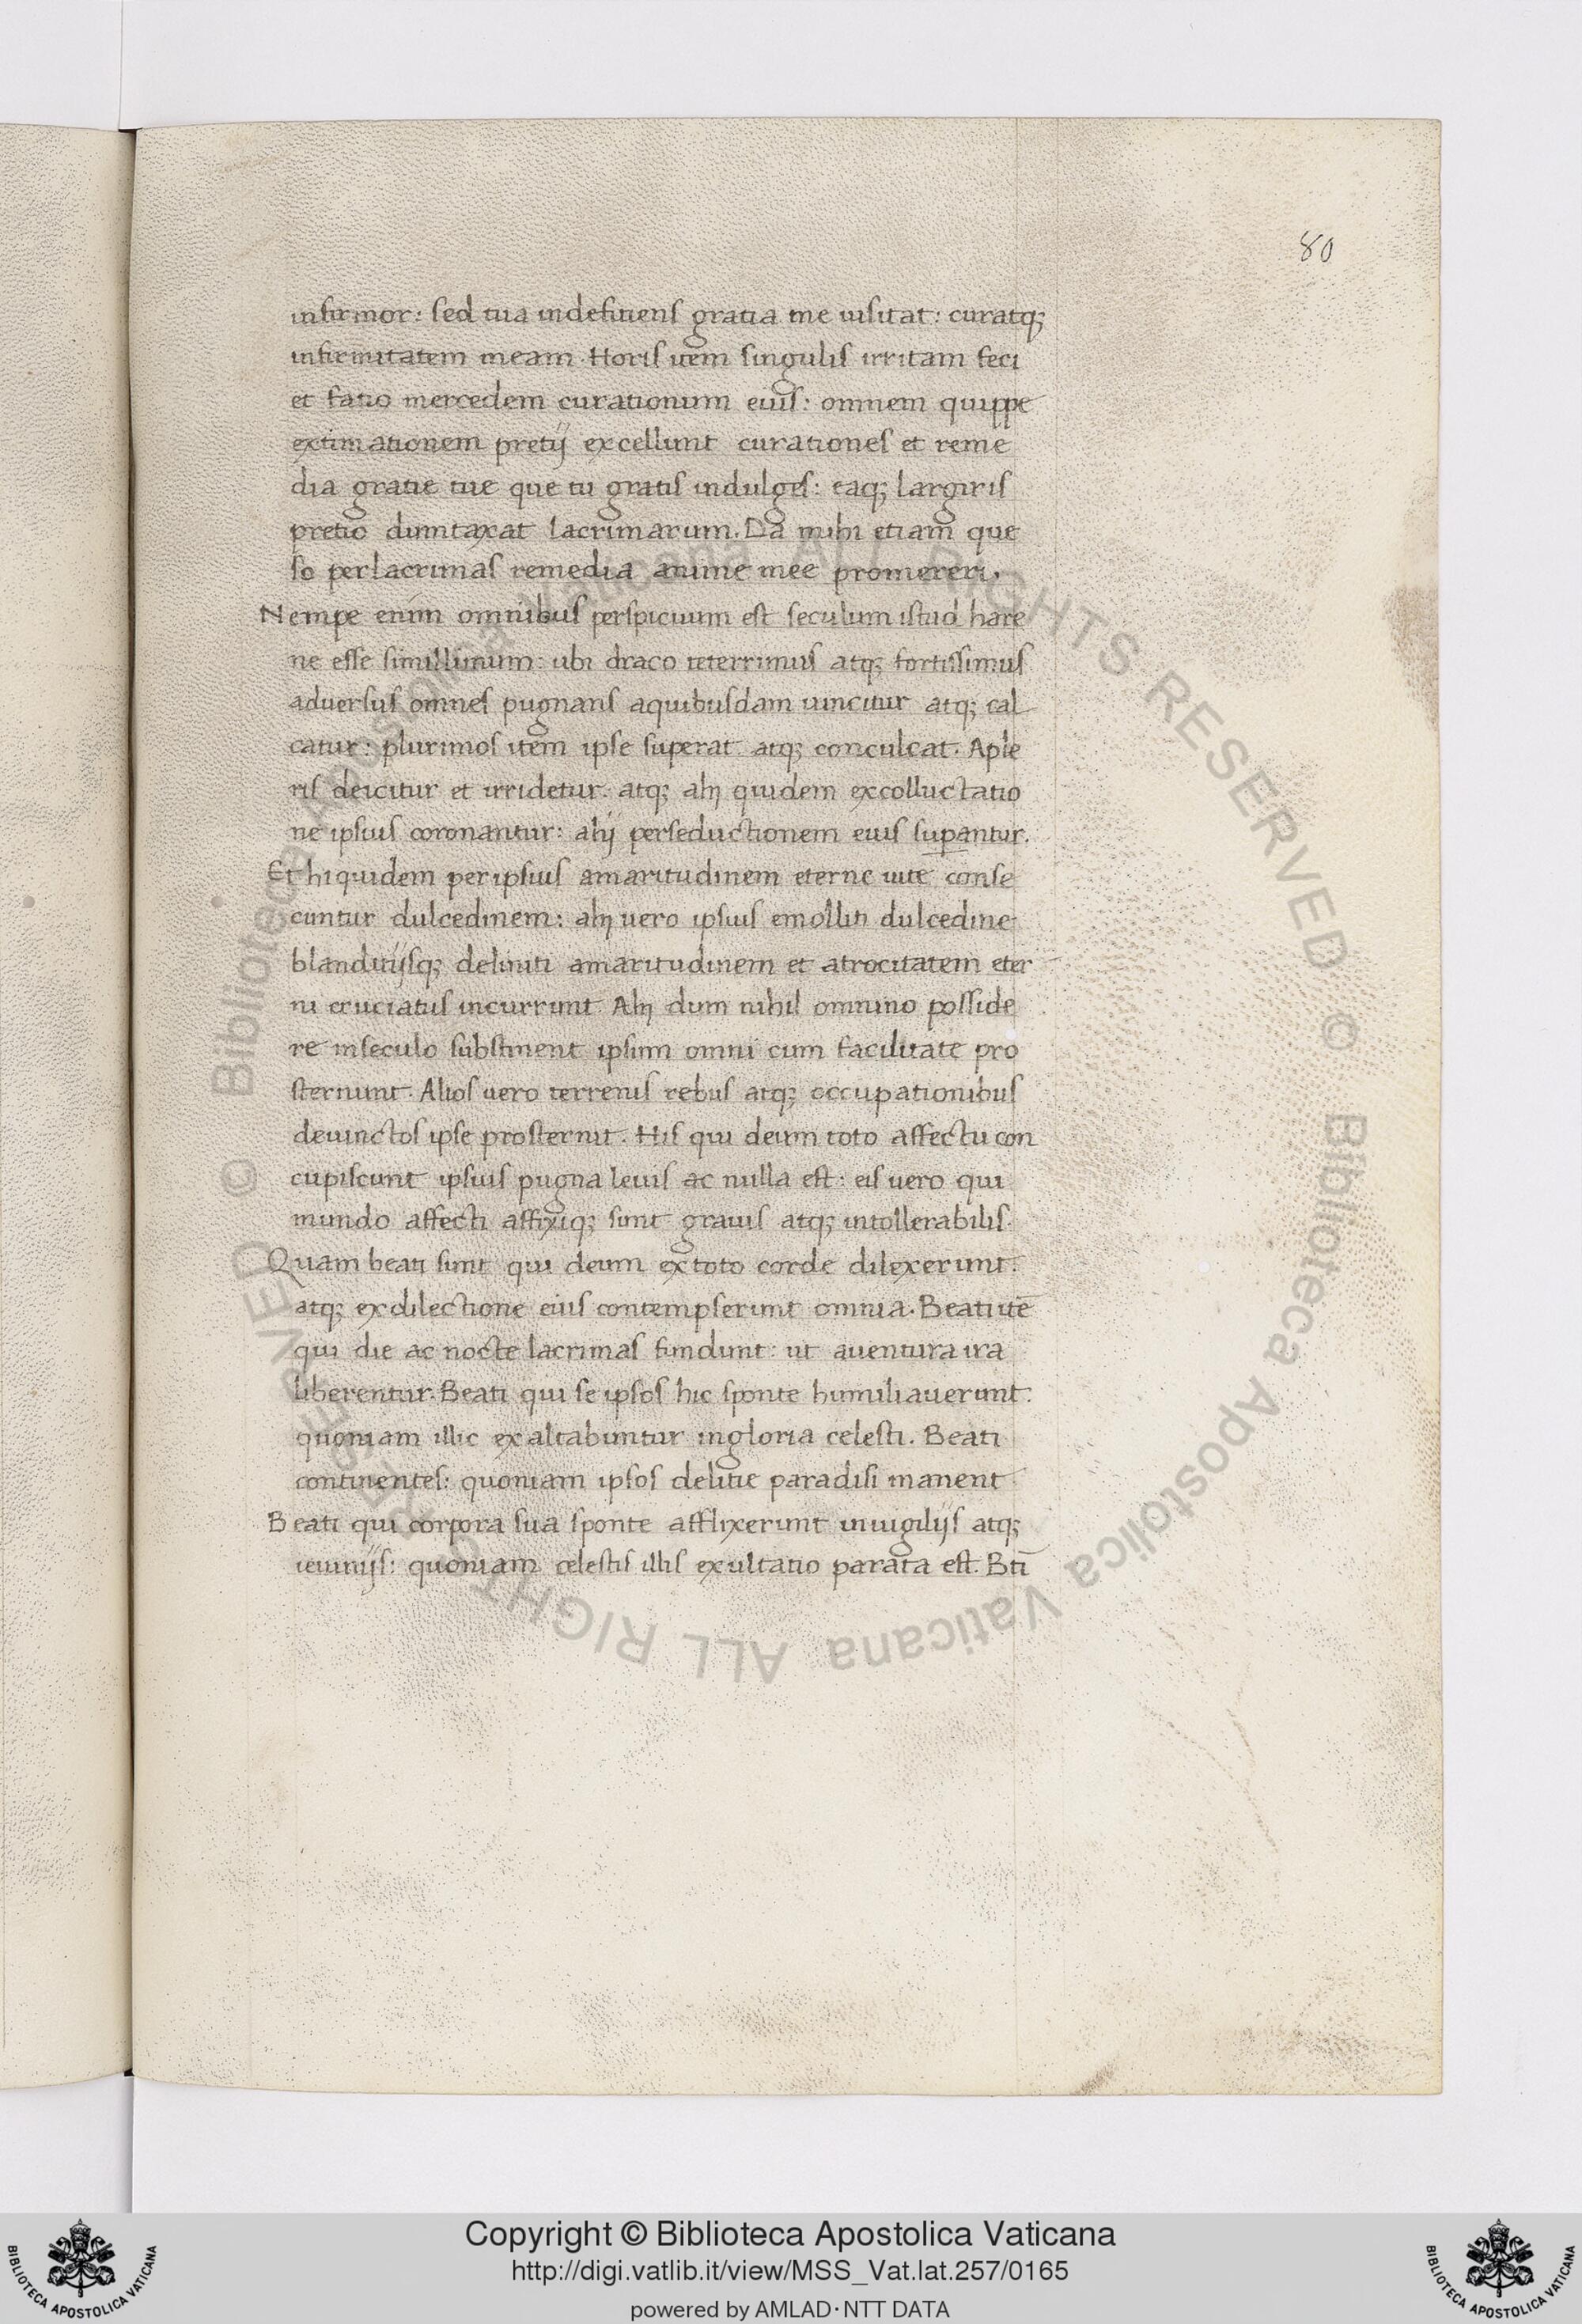 80
infirmor: sed tua indefitiens gratia me uisitat: curatq;
infirmitatem meam. Horis item singulis irritam feci
et fatio mercedem curationum eius: omnem quippe
extimationem pretij excellunt curationes et reme
dia gratie tue que tu gratis indulges: eaq; largiris
pretio dumtaxat lacrimarum. Da mihi etiam que
so per lacrimas remedia anime mee promereri.
Nempe enim omnibus perspicuum est seculum istud hare
ne esse simillimum: ubi draco teterrimus atq; fortissimus
aduersus omnes pugnans aquibusdam uincitur atq; cal
catur: plurimos item ipse superat atq; conculcat. Aple
ris deicitur et irridetur. atq; alij quidem excolluctatio
ne ipsius coronantur: alij perseductionem eius supantur.
Et hi quidem per ipsius amaritudinem eterne uite conse
cuntur dulcedinem: alij uero ipsius emolliti dulcedine
blanditijsq; deliniti amaritudinem et atrocitatem eter
ni cruciatus incurrunt. Alij dum nihil omnino posside
re inseculo substinent ipsum omni cum facilitate pro
sternunt. Alios uero terrenis rebus atq; occupationibus
deuinctos ipse prosternit. His qui deum toto affectu con
cupiscunt ipsius pugna leuis ac nulla est: eis uero qui
mundo affecti affixiq; sunt grauis atq; intollerabilis.
Quam beati sunt qui deum ex toto corde dilexerunt.
atq; exdilectione eius contempserunt omnia. Beati itē
qui die ac nocte lacrimas fundunt: ut auentura ira
liberentur. Beati qui se ipsos hic sponte humiliauerunt.
quoniam illic exaltabuntur ingloria celesti. Beati
continentes: quoniam ipsos delitie paradisi manent.
Beati qui corpora sua sponte afflixerunt inuigilijs atq;
ieiunijs: quoniam celestis illis exultatio parata est. Bti̅
© Biblioteca Apostolica Vaticana ALL RIGHTS RESERVED © Biblioteca Apostolica Vaticana ALL RIGHTS RESERVED
Copyright © Biblioteca Apostolica Vaticana
http://digi.vatlib.it/view/MSS_Vat.lat.257/0165
powered by AMLAD·NTT DATA
BIBLIOTECA APOSTOLICA VATICANA
BIBLIOTECA APOSTOLICA VATICANA